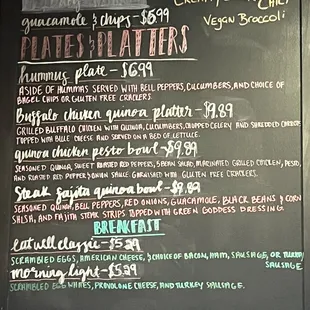 Vegan Broccoli
guacamole & chips - $6.99
PLATES & PLATTERS
hummus plate - $6.99
A SIDE OF HUMMAS SERVED WITH BELL PEPPERS, CUCUMBERS, AND CHOICE OF
BAGEL CHIPS OR GLUTEN FREE CRACKERS.
Buffalo chicken quinoa platter - $9.89
GRILLED BUFFALO CHICKEN WITH QUINOA, CUCUMBERS, CHOPPED CELERY AND SHREDDED CHEESE
TOPPED WITH BLUE CHEESE AND SERVED ON A BED OF LETTUCE.
quinoa chicken pesto bowl - $9.89
SEASONED QUINOA, SWEET ROASTED RED PEPPERS, SALAD, MARINATED GRILLED CHICKEN, PESTO,
AND ROASTED RED PEPPER SAUCE. GARNISHED WITH GLUTEN FREE CRACKERS.
Steak fajita quinoa bowl - $9.89
SEASONED QUINOA, BELL PEPPERS, RED ONIONS, GUACAMOLE, BLACK BEANS & CORN
SALSA, AND FAJITA STEAK STRIPS TOPPED WITH GREEN GODDESS DRESSING
BREAKFAST
eat well classic - $5.29
SCRAMBLED EGGS, AMERICAN CHEESE, & CHOICE OF BACON, HAM, SAUSAGE, OR TURKEY
SAUSAGE
morning light - $5.29
SCRAMBLED EGG WHITES, PROVOLONE CHEESE, AND TURKEY SAUSAGE.